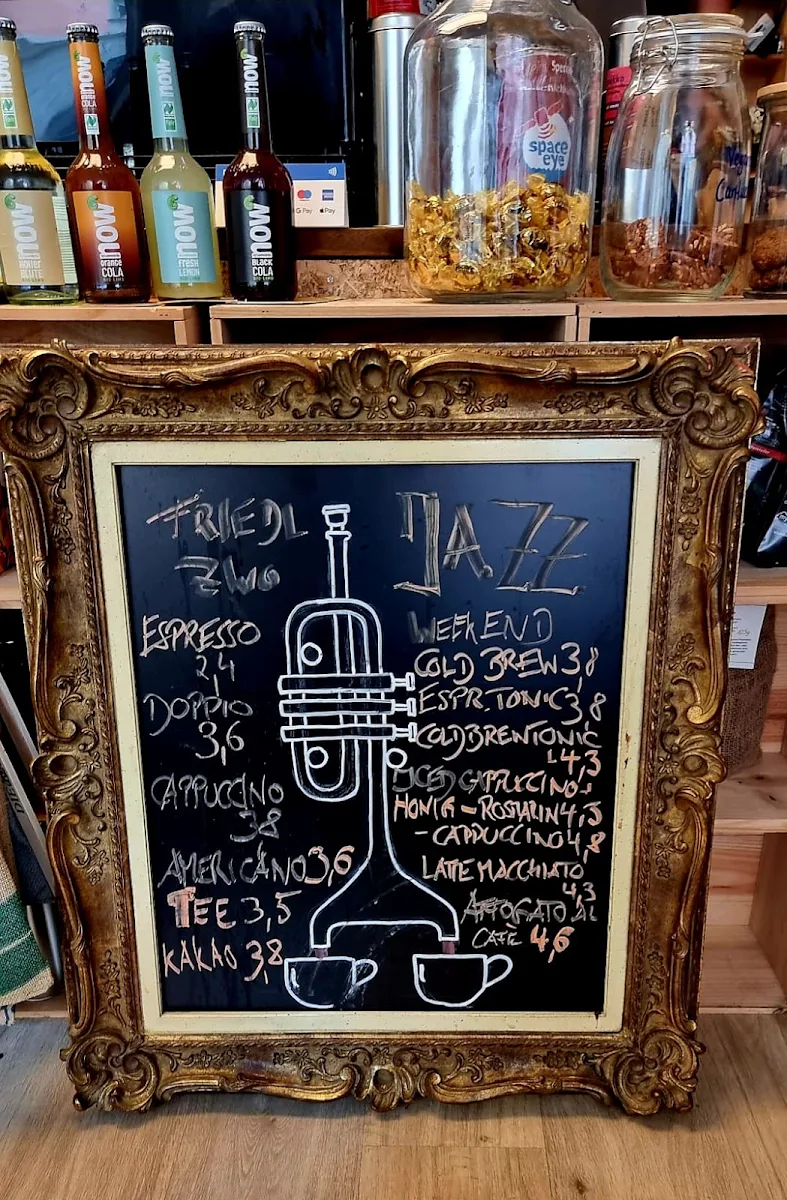 now
now
now
now
orange
COLA
now
now
now
now
FRESH
LEMON
BLACK
COLA
G Pay
Pay
space
eye
FRIEDL
ZWO
ESPRESSO
2,4
DOPPIO
3,6
CAPPUCCINO
38
AMERICANO 3,6
TEE 3,5
KAKAO 3,8
JAZZ
WEEKEND
COLD BREW 3,8
ESPR. TONIC 3,8
COLDBREWTONIC
4,3
ICED CAPPUCCINO
HONIG - ROSMARIN 4,3
- CAPPUCCINO 4,8
LATTE MACCHIATO
4,3
AFFOGATO AL
CAFÈ 4,6